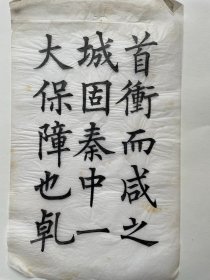 首衝而咸之
城固秦中一
大保障也乹